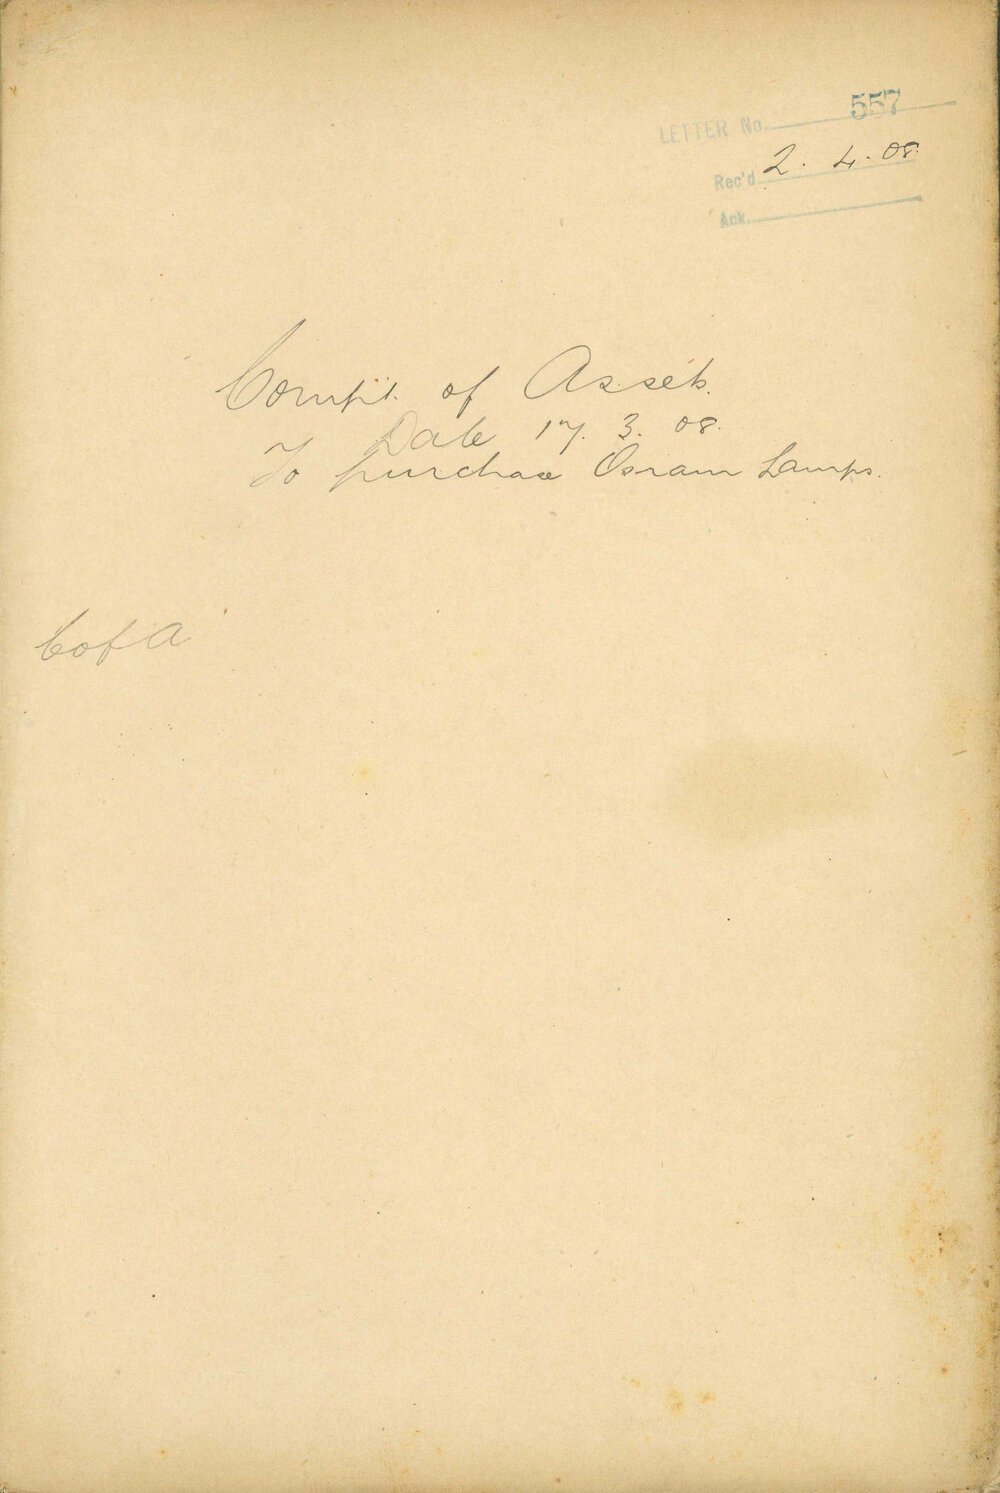 LETTER No. 557
Rec'd 2. 4. 08.
Ack.
Compt. of Assets.
Date 17. 3. 08.
To purchase Osram Lamps.
C of A